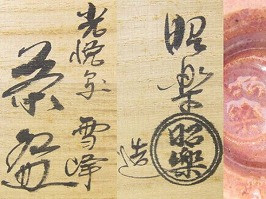 光悦写 雪峰
茶碗
昭楽
造
昭樂